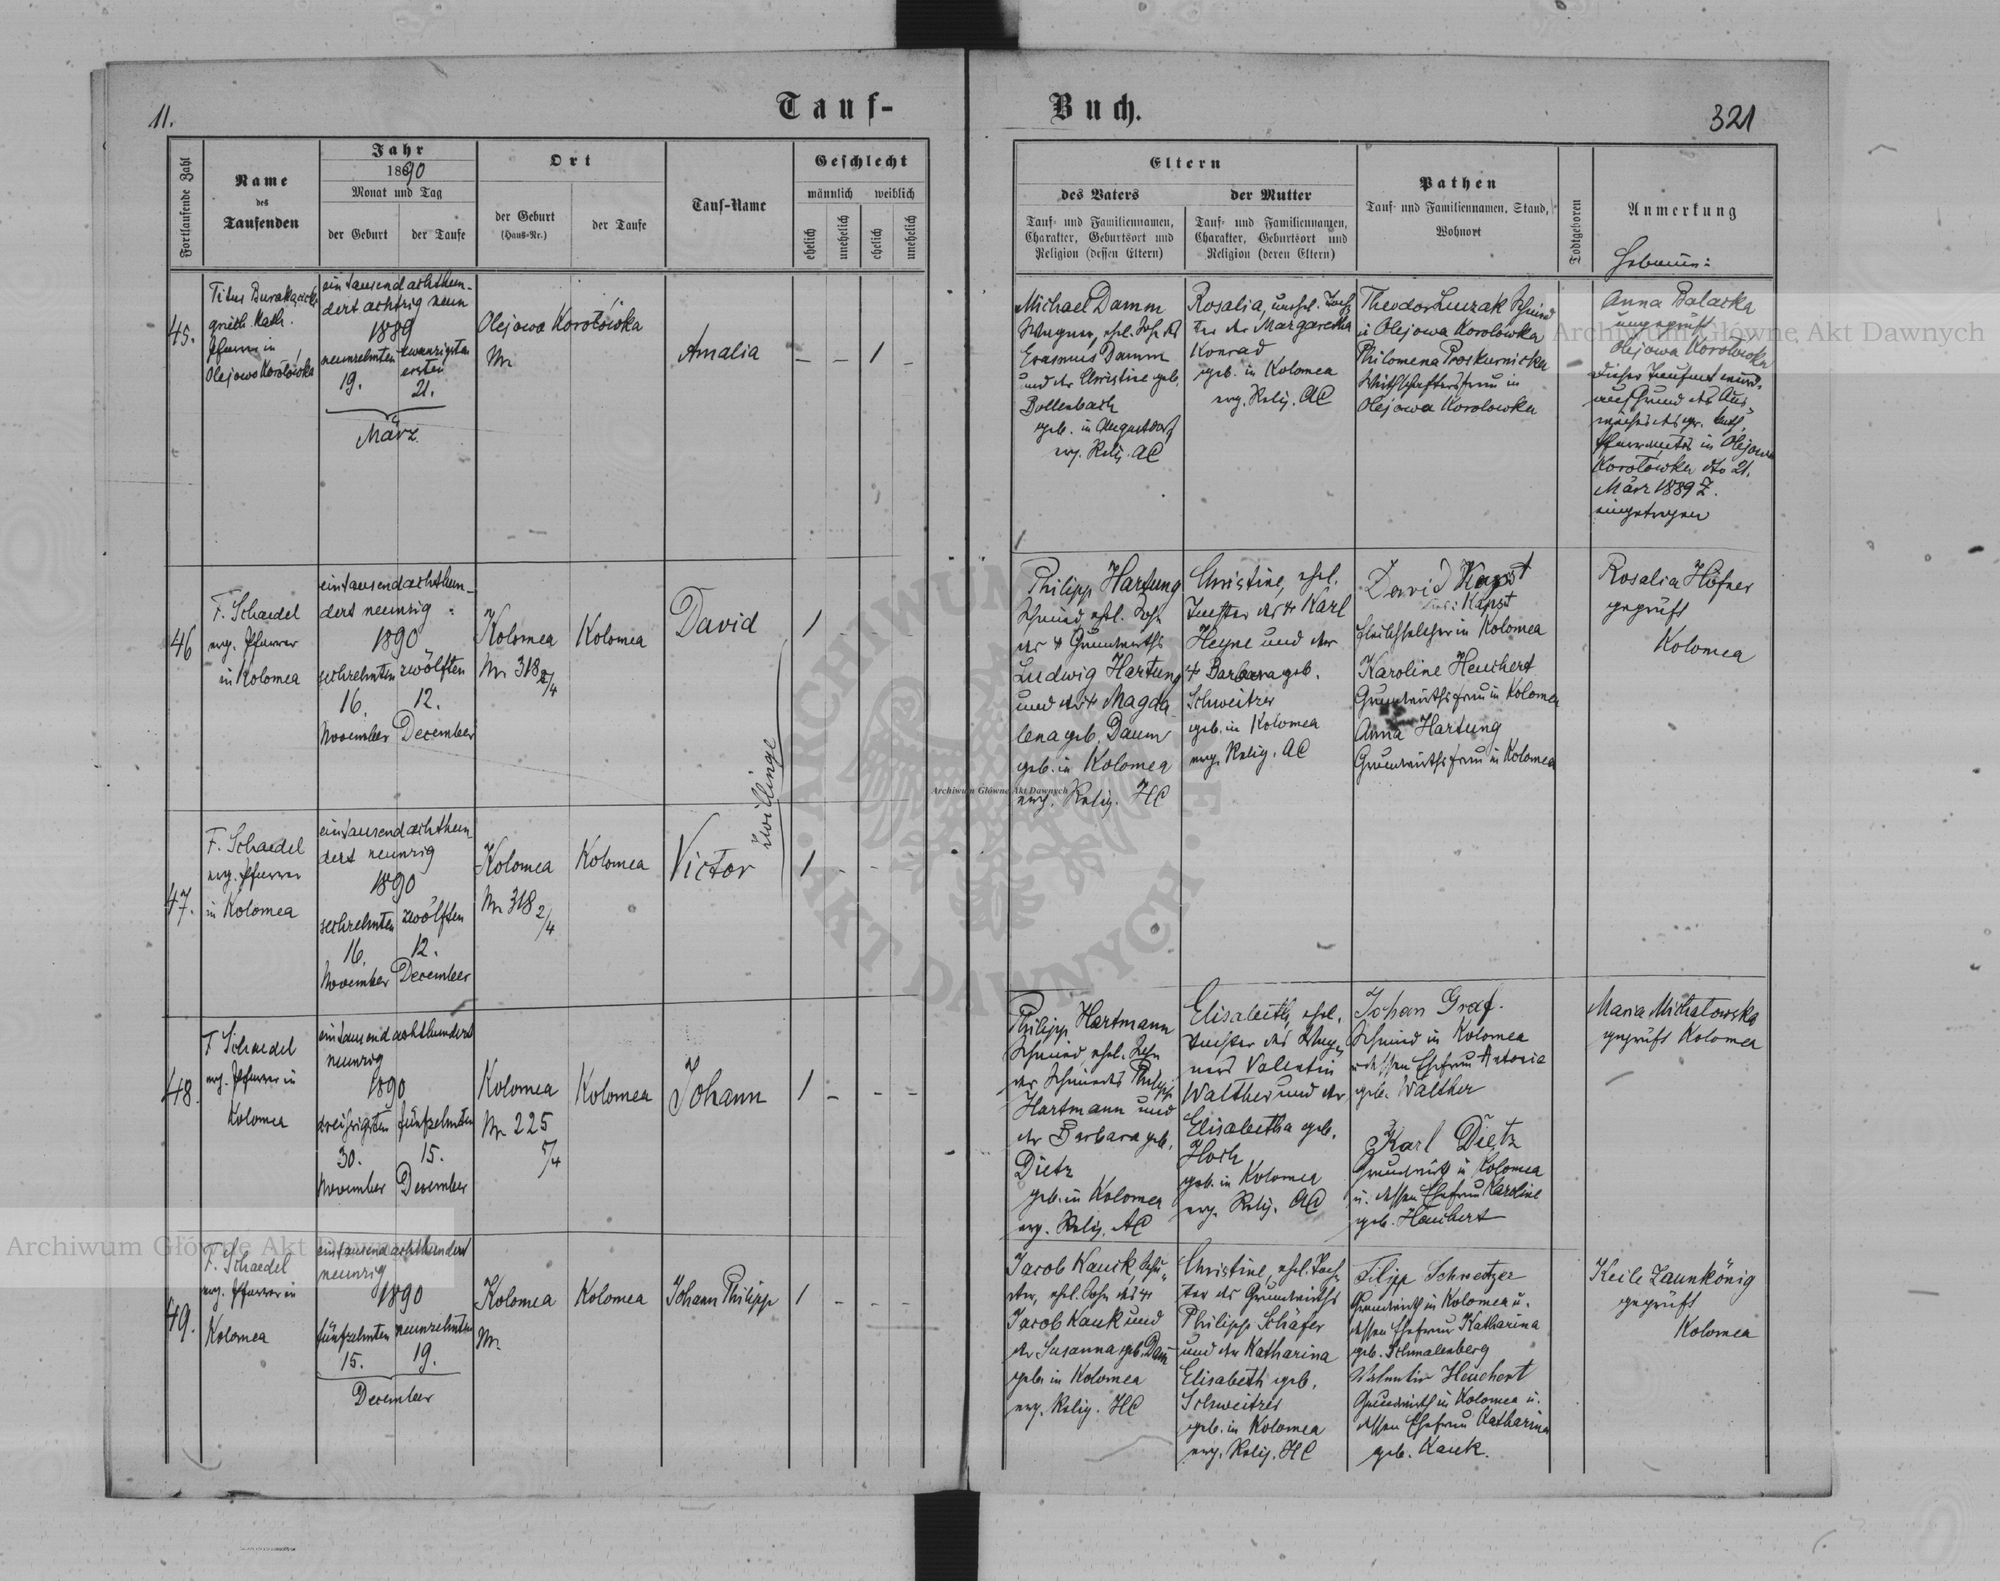 11.
Tauf-
Buch.
321
Fortlaufende Zahl
Name
des
Taufenden
Jahr
1890
Monat und Tag
der Geburt
der Taufe
Ort
der Geburt
(Haus-Nr.)
der Taufe
Tauf-Name
Geschlecht
männlich
weiblich
ehelich
unehelich
ehelich
unehelich
Eltern
des Vaters
Tauf- und Familiennamen,
Charakter, Geburtsort und
Religion (dessen Eltern)
der Mutter
Tauf- und Familiennamen,
Charakter, Geburtsort und
Religion (deren Eltern)
Pathen
Tauf- und Familiennamen, Stand,
Wohnort
Todtgeboren
Anmerkung
Hebamme:
45.
Titus
griech. kath.
Pfarrer in
Olejowa Korolówka
eintausendachthun-
dert achtzig neun
1889
neunzehnten
19.
zwanzigsten
ersten
21.
März
Olejowa Korolówka
Nr
Amalia
— — 1 —
Michael Damm
Wagner, ehel. Sohn des
Erasmus Damm
und der Christine geb.
Bollenbach
geb. in Augustdorf
evg. Relig. AC
Rosalia, unehel. Toch-
ter der Margaretha
Konrad
geb. in Kolomea
evg. Relig. AC
Theodor Schmied
in Olejowa Korolówka
Philomena Proskurnicka
Wirthschaftersfrau in
Olejowa Korolowka
Anna Balaska
ungeprüft
Olejowa Korolowka
Dieser Taufact wurde
auf Grund des Aus-
weises des gr. kath.
Pfarramtes in Olejowa
Korolowka dto 21.
März 1889 Z.
eingetragen
46
F. Schaedel
evg. Pfarrer
in Kolomea
eintausendachthun-
dert neunzig
1890
sechzehnten zwölften
16. 12.
November December
Kolomea
Nr 318 2/4
Kolomea
David
1 - - -
Zwillinge
Philipp Hartung
Schmied, ehel. Sohn
des + Grundwirths
Ludwig Hartung
und der + Magda-
lena geb. Daum
geb. in Kolomea
evg. Relig. HC
Christine, ehel.
Tochter des + Karl
Heyne und der
+ Barbara geb.
Schweitzer
geb. in Kolomea
evg. Relig. AC
David Kapst
Kapst
Fleischselcher in Kolomea
Karoline Heuchert
Grundwirthsfrau in Kolomea
Anna Hartung
Grundwirthsfrau in Kolomea
Rosalia Höfner
geprüft
Kolomea
47.
F. Schaedel
evg. Pfarrer
in Kolomea
eintausendachthun-
dert neunzig
1890
sechzehnten zwölften
16. 12.
November December
Kolomea
Nr 318 2/4
Kolomea
Victor
1 - - -
48.
F Schaedel
evg. Pfarrer in
Kolomea
eintausendachthundert
neunzig
1890
dreißigsten fünfzehnten
30. 15.
November December
Kolomea
Nr 225
5/4
Kolomea
Johann
1 - - -
Philipp Hartmann
Schmied, ehel. Sohn
des Schmiedes Philipp
Hartmann und
der Barbara geb.
Dietz
geb. in Kolomea
evg. Relig. AC
Elisabeth, ehel.
Tochter des Wag-
ners Valentin
Walther und der
Elisabetha geb.
Hoch
geb. in Kolomea
evg. Relig. AC
Johan Graf.
Schmied in Kolomea
u dessen Ehefrau Antonia
geb. Walther
Karl Dietz
Grundwirth in Kolomea
u. dessen Ehefrau Karoline
geb. Heuchert
Maria Michalowska
geprüft Kolomea
49.
F. Schaedel
evg. Pfarrer in
Kolomea
eintausendachthundert
neunzig
1890
fünfzehnten neunzehnten
15. 19.
December
Kolomea
Nr
Kolomea
Johann Philipp
1 - - -
Jacob Kauk, Schu-
ster, ehel. Sohn des +
Jacob Kauk und
der Susanna geb. Daum
geb. in Kolomea
evg. Relig. HC
Christine, ehel. Toch-
ter des Grundwirths
Philipp Schäfer
und der Katharina
Elisabeth geb.
Schweitzer
geb. in Kolomea
evg. Relig. HC
Filipp Schweitzer
Grundwirth in Kolomea u.
dessen Ehefrau Katharina
geb. Schmalenberg
Valentin Heuchert
Grundwirth in Kolomea u.
dessen Ehefrau Katharina
geb. Kauk.
Keile Zaunkönig
geprüft
Kolomea
Archiwum Główne Akt Dawnych
Archiwum Główne Akt Dawnych
Archiwum Główne Akt Dawnych
ARCHIWUM GŁÓWNE
AKT DAWNYCH